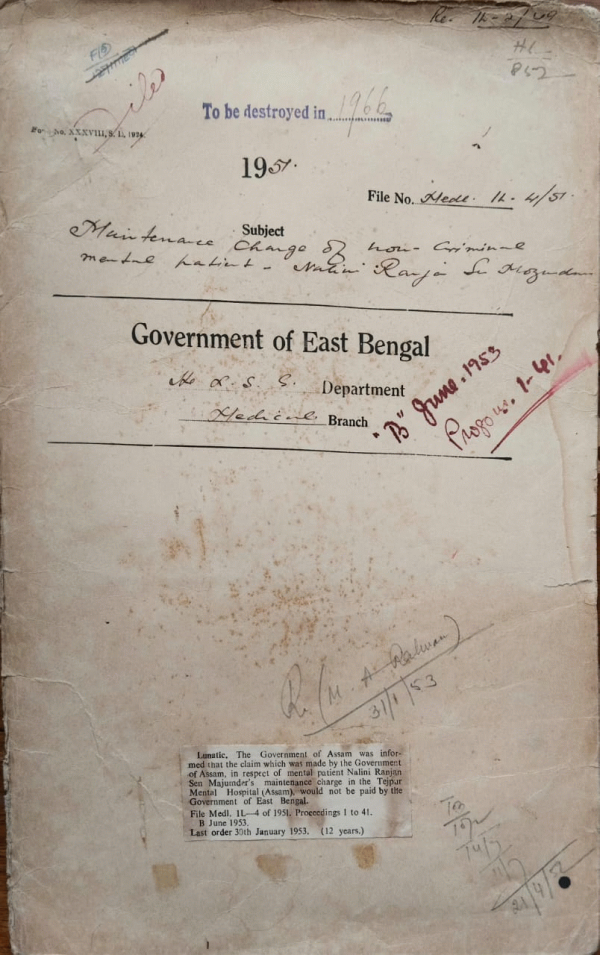 Re. 1L-2/49
H.L
852
Filed
To be destroyed in 1966
Form No. XXXVIII, S. D., 1924.
1951.
File No. Medl. 1L-4/51.
Subject
Maintenance Charge of non-Criminal
mental patient - Nalini Ranjan Sen Mozumdar
Government of East Bengal
H & L. S. G. Department
Medical Branch
"B" June. 1953
Progs. 1-41.
R. (M. A. Rahman)
31/1/53
Lunatic, The Government of Assam was infor-
med that the claim which was made by the Government
of Assam, in respect of mental patient Nalini Ranjan
Sen Majumder's maintenance charge in the Tejpur
Mental Hospital (Assam), would not be paid by the
Government of East Bengal.
File Medl. 1L—4 of 1951. Proceedings 1 to 41.
B June 1953.
Last order 30th January 1953. (12 years.)
14/7
11/7
21/4/52